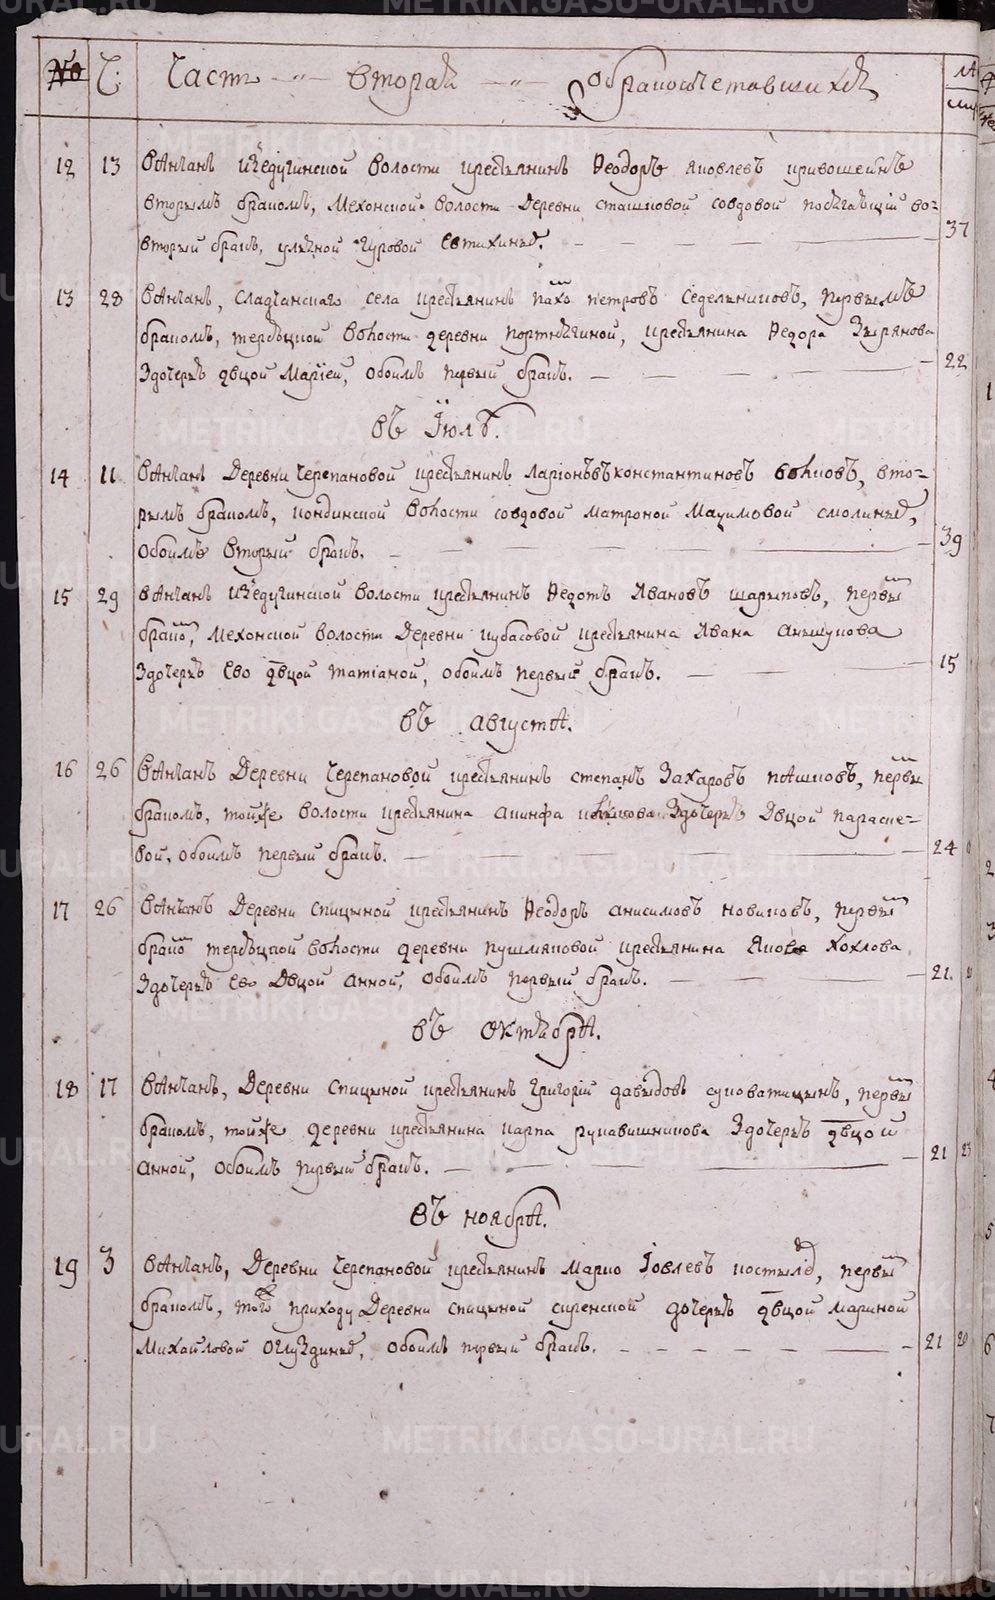 № Ч: Часть -"- вторая -"- обракосочетавшихся
12 13 Вѣнчанъ Изъедугинской волости крестьянинъ Ѳеодоръ Яковлевъ Кривошеинъ
вторымъ бракомъ, Мехонской волости деревни Сташковой совдовой
вторый бракъ, Гуровой Евтихиные. 37
13 28 Вѣнчанъ, Сладчанскаго села крестьянинъ Пахо Петровъ Седельниковъ, первымъ
бракомъ, Терсюцкой волости деревни Портнягиной, крестьянина Ѳедора Зырянова
здочерью двцой Маріей, обоимъ первый бракъ. 22
въ Іюлѣ.
14 11 Вѣнчанъ деревни Черепановой крестьянинъ Ларіонъ Константиновъ Волковъ, вто-
рымъ бракомъ, Кондинской волости совдовой Матроной Мацимовой Смолиные,
обоимъ вторый бракъ. 39
15 29 вѣнчанъ Изъедугинской волости крестьянинъ Ѳедотъ Ивановъ Шарыповъ, первы
брако, Мехонской волости деревни Кубасовой крестьянина Ивана
здочерью Ево двцой Татіаной, обоимъ первый бракъ. 15
въ августѣ.
16 26 Вѣнчанъ деревни Черепановой крестьянинъ Степанъ Захаровъ Пѣшковъ, первы
бракомъ, тойже волости крестьянина Акинфа здочерью двцой Параске-
вой, обоимъ первый бракъ. 24
17 26 Вѣнчанъ деревни Спицыной крестьянинъ Ѳеодоръ Анисимовъ Новиковъ, первы
брако Терсюцкой волости деревни Кушмяковой крестьянина Якова Хохлова
здочерью Ево двцой Анной, обоимъ первый бракъ. 21
въ октябрѣ.
18 17 Вѣнчанъ, деревни Спицыной крестьянинъ Григорій Давыдовъ Суковатицынъ, первы
бракомъ, тойже деревни крестьянина Карпа Рукавишникова здочерью двцой
Анной, обоимъ первый бракъ. 21 23
въ ноябрѣ.
19 3 Вѣнчанъ, деревни Черепановой крестьянинъ Марко Іовлевъ Костылѣ, первы
бракомъ, того приходу деревни Спицыной дочерью двцой Мариной
Михайловой Оглуздиные, обоимъ первый бракъ. 21 20